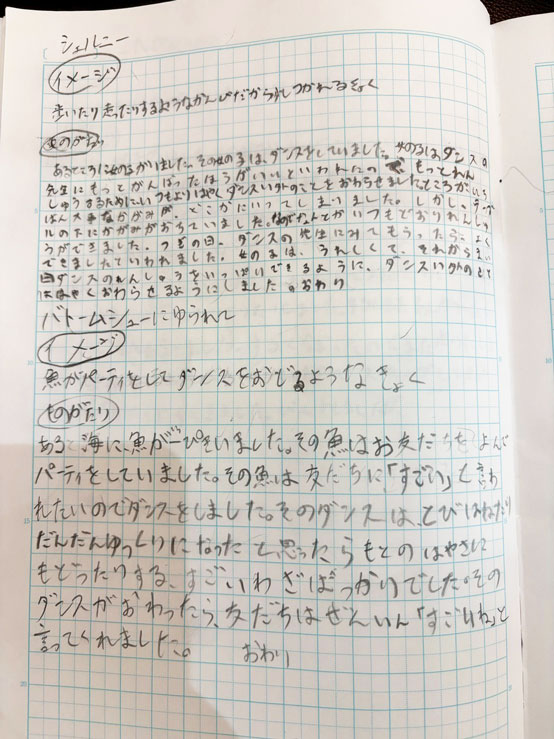 シェルニー
イメージ
歩いたり走ったりするようなかんじだから少しつかれるきょく
ものがたり
あるところに女の子がいました。その女の子は、ダンスをしていました。女の子はダンスの
先生にもっとがんばったほうがいいといわれたので、もっとれん
しゅうするためにいつもよりはやくダンスいがいのことをおわらせました。ところがいち
ばん大事なかがみが、どこかにいってしまいました。しかし、テーブ
ルの下にかがみがおちていました。なのでなんとかいつもどおりれんしゅ
うができました。つぎの日、ダンスの先生にみてもらったら、よく
できましたといわれました。女の子は、うれしくて、それからまい
日ダンスのれんしゅうをいっぱいできるように、ダンスいがいのこと
ははやくおわらせるようにしました。おわり
バトームシューにゆられて
イメージ
魚がパーティをしてダンスをおどるようなきょく
ものがたり
ある海に、魚が一ぴきいました。その魚はお友だちをよんで
パーティをしていました。その魚は友だちに「すごい」と言わ
れたいのでダンスをしました。そのダンスは、とびはねたり
だんだんゆっくりになったと思ったらもとのはやさに
もどったりする、すごいわざばっかりでした。その
ダンスがおわったら、友だちはぜんいん「すごいね」と
言ってくれました。
おわり